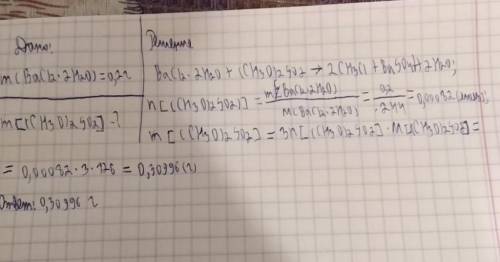 Дано: Решение
m(BaCl2·2H2O)=0,2г
BaCl2·2H2O + (CH3O)2SO2 → 2CH3Cl + BaSO4↓+2H2O;
n[(CH3O)2SO2] = m(BaCl2·2H2O) / M(BaCl2·2H2O) = 0,2 / 244 = 0,00082 (моль);
m[(CH3O)2SO2] - ?
m[(CH3O)2SO2] = 3n[(CH3O)2SO2]·M[(CH3O)2SO2] =
= 0,00082·3·126 = 0,30996 (г)
Ответ: 0,30996 г